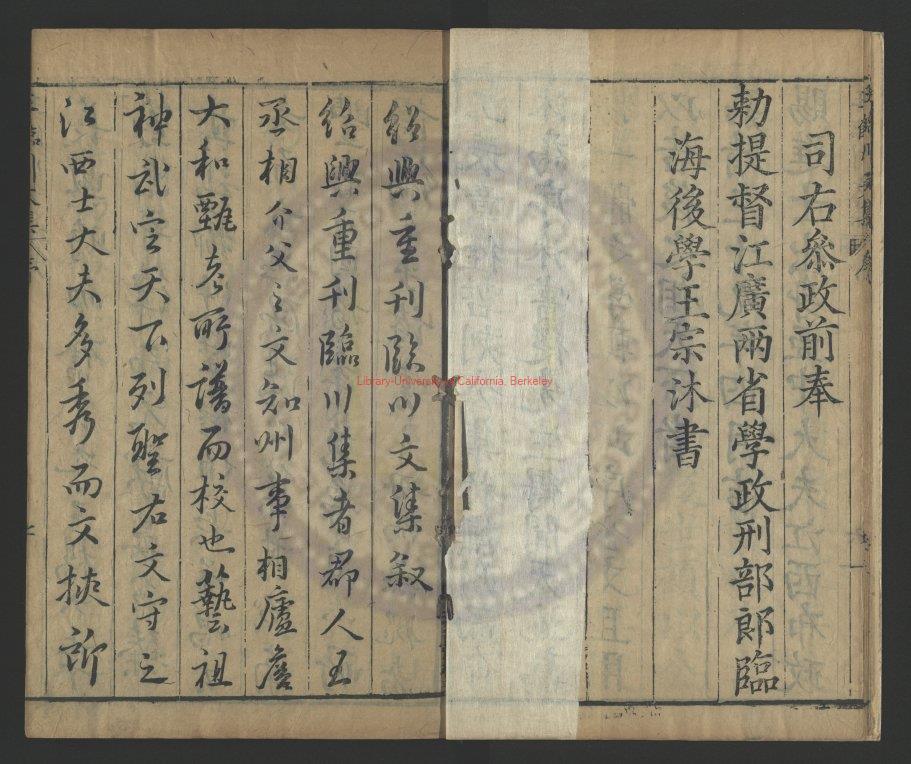 司右叅政前奉
勑提督江廣兩省學政刑部郎臨
海後學王宗沐書
紹興重刊臨川文集叙
紹興重刊臨川集者郡人王
丞相介父之文知州事桐廬詹
大和甄老所譜而校也藝祖
神武定天下列聖右文守之
江西士大夫多秀而文挾所
Library-University of California, Berkeley